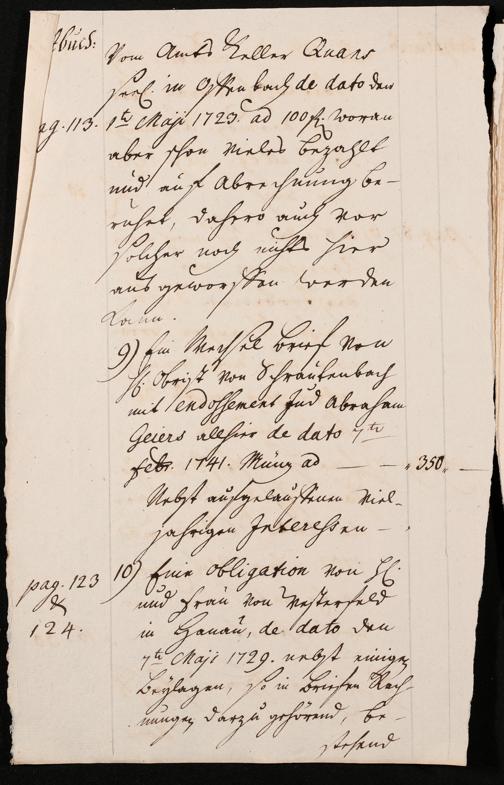 buch:
Vom Amts Keller Quans
seel. in Offenbach de dato den
pag. 113. 1ten Maji 1723. ad 100 fl. woran
aber schon vieles bezahlt
und auf Abrechnung be-
ruhet, dahero auch vor
solcher noch nichts hier
ausgeworffen werden
kann.
9) Ein Wechsel Brief von
H: Obrist von Schrautenbach
mit endossement Jud Abraham
Geiers allhier de dato 7ten
febr. 1741. Müntz ad — — „350„ —
Nebst aufgelauffenen viel-
jährigen Interessen —
pag. 123 10) Eine obligation von H:
& und Frau von Vesterfeld
124. in Hanau, de dato den
7ten Maji 1729. nebst einigen
Beylagen, so in Brieffen Rech-
nungen darzu gehörend, be-
stehend